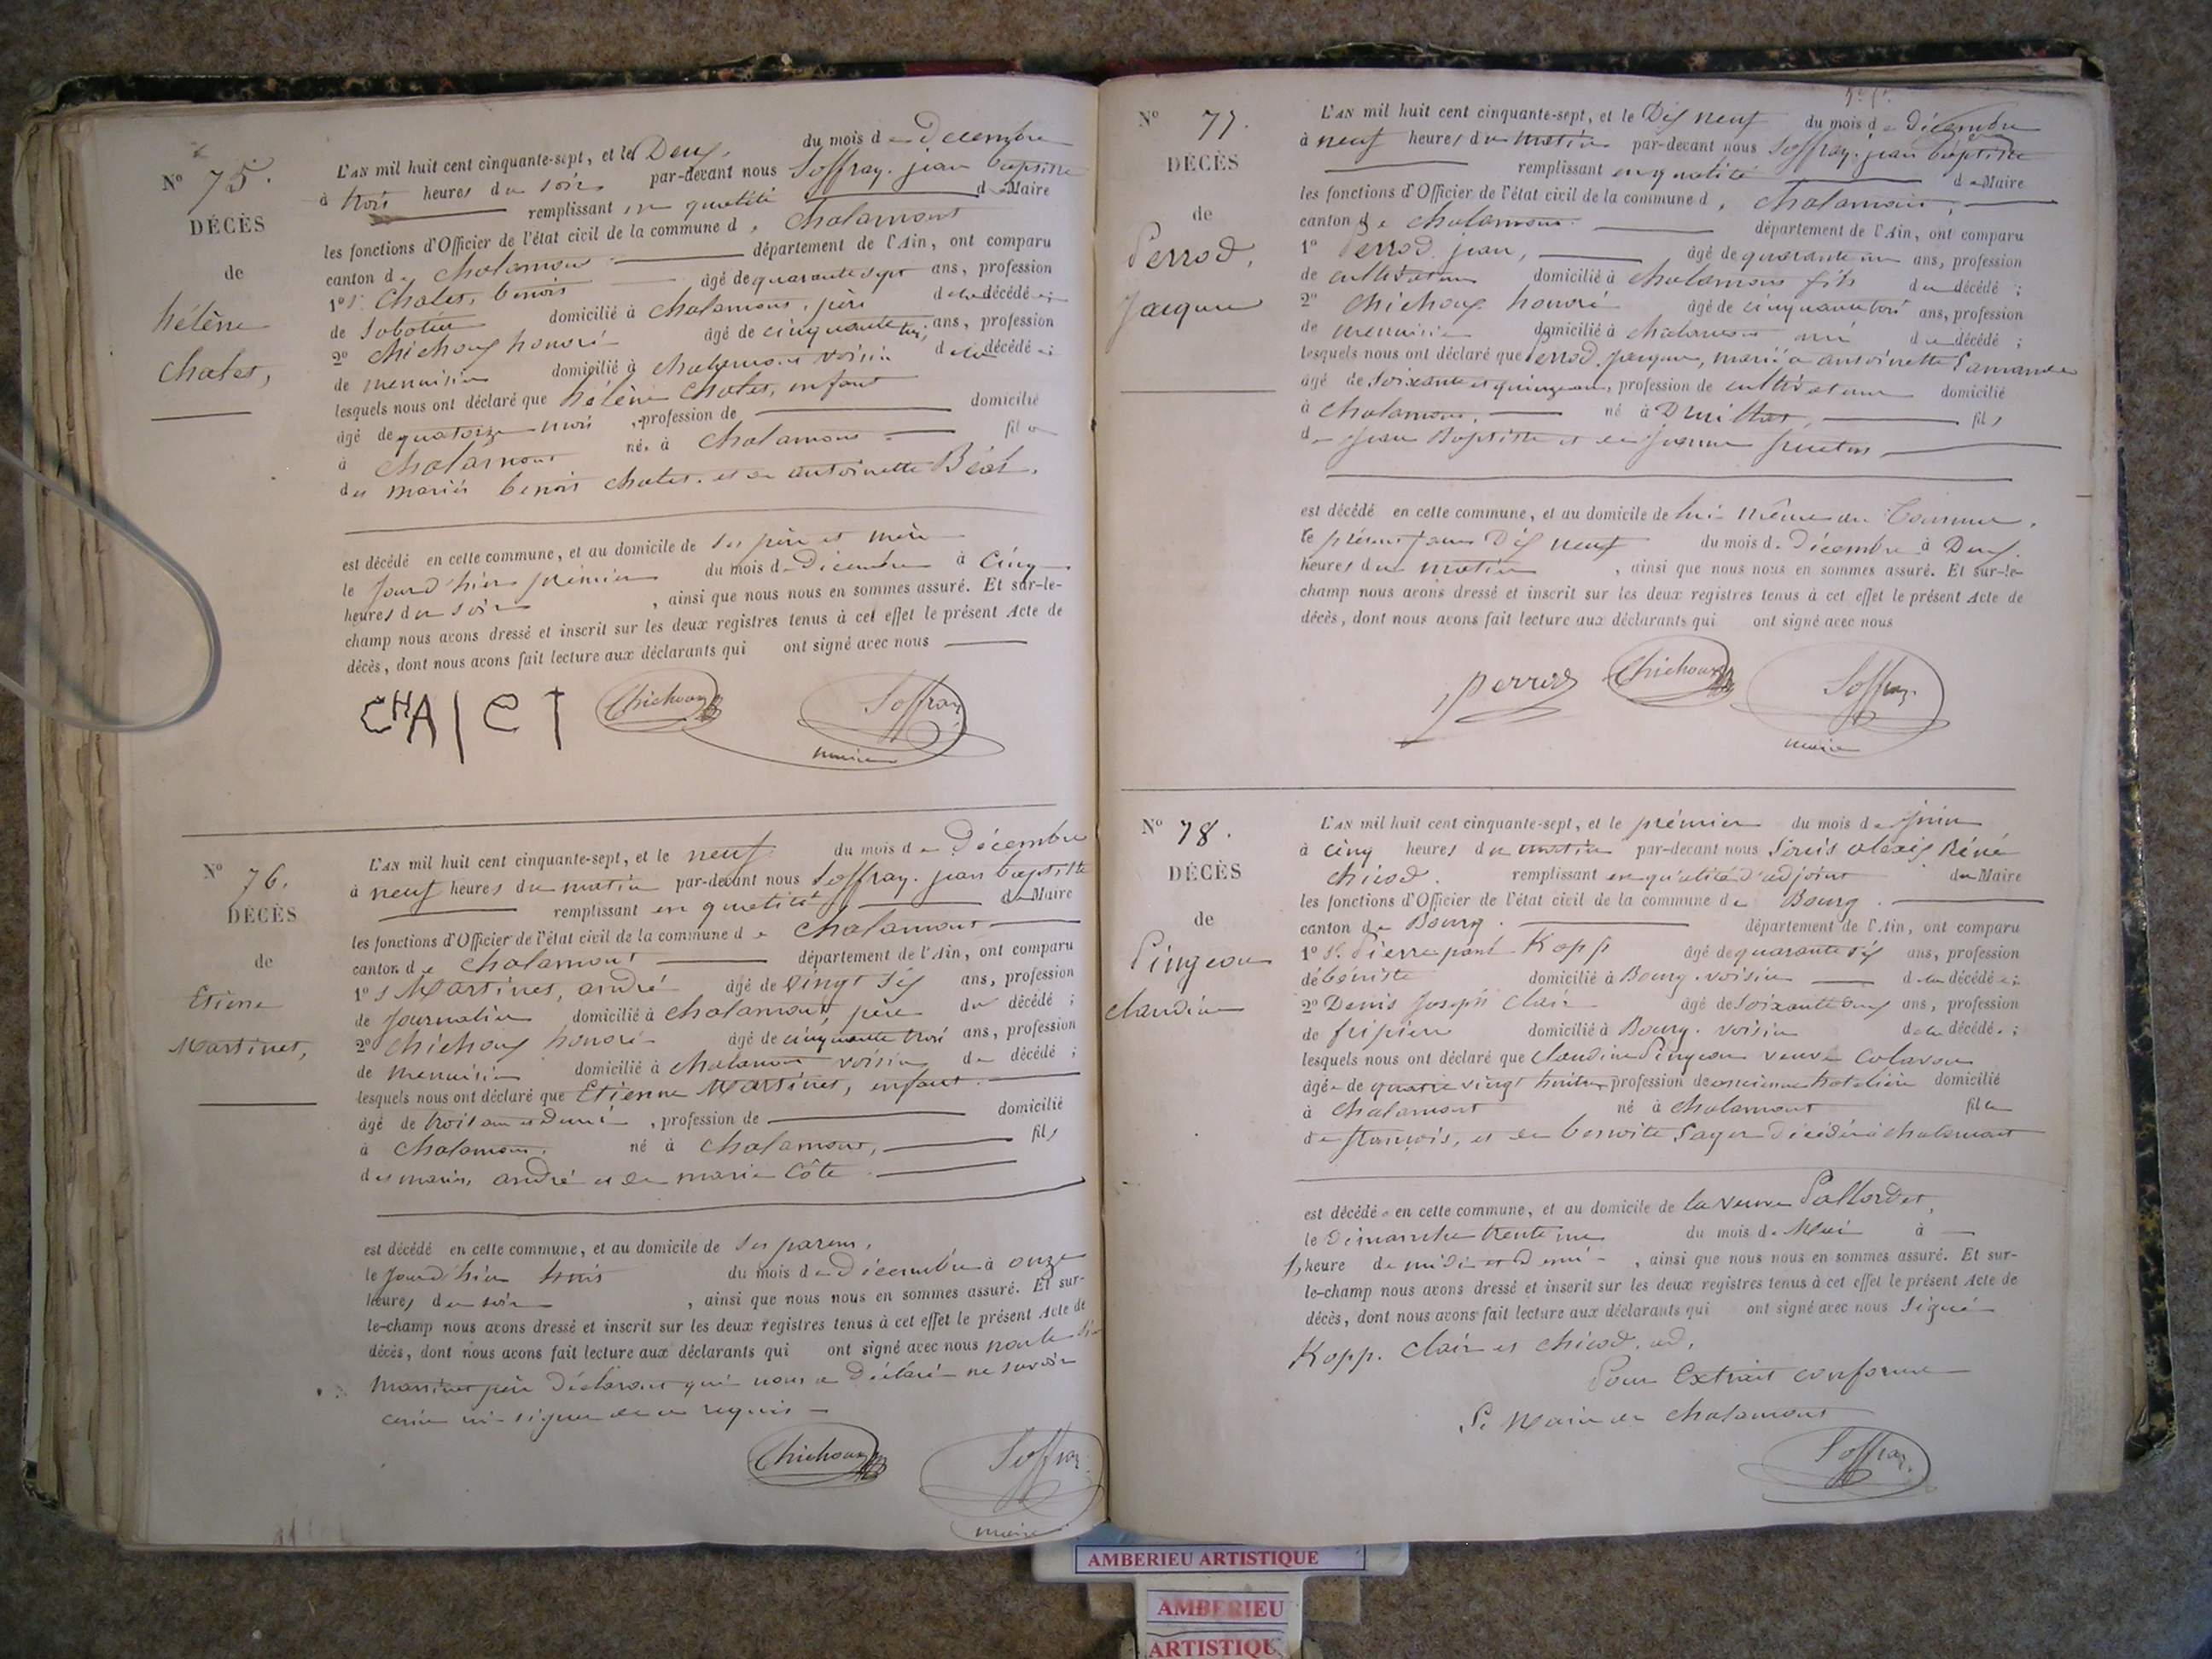 Nº 75.
DÉCÈS
de
hélène
Chalet,
L'AN mil huit cent cinquante-sept, et le Deux, du mois de Décembre
à trois heures du soir par-devant nous Soffray. jean baptiste
remplissant en qualité de Maire
les fonctions d'Officier de l'état civil de la commune d, Chalamont
canton de Chalamont département de l'Ain, ont comparu
1º S. Chalet, benoit âgé de quarante sept ans, profession
de Sabotier domicilié à Chalamont, père de la décédée;
2º Chichoux honoré âgé de cinquante trois ans, profession
de menuisier domicilié à Chalamont voisin de la décédée;
lesquels nous ont déclaré que hélène Chalet, enfant
âgé de quatorze mois, profession de domicilié
à Chalamont né. à Chalamont fille
des mariés benoit chalet. et de antoinette Béal.
est décédé en cette commune, et au domicile de ses père et mère
le jourd'hier prémier du mois de Décembre à Cinq
heures du soir, ainsi que nous nous en sommes assuré. Et sur-le-
champ nous avons dressé et inscrit sur les deux registres tenus à cet effet le présent Acte de
décès, dont nous avons fait lecture aux déclarants qui ont signé avec nous
CHAleT Chichoux Soffray
maire
Nº 76.
DÉCÈS
de
Etienne
Martinet,
L'AN mil huit cent cinquante-sept, et le neuf du mois de Décembre
à neuf heures du matin par-devant nous Soffray. jean baptiste
remplissant en qualité de Maire
les fonctions d'Officier de l'état civil de la commune de Chalamont
canton de Chalamont département de l'Ain, ont comparu
1º S Martinet, andré âgé de vingt six ans, profession
de Journalier domicilié à Chalamont, père du décédé;
2º Chichoux honoré âgé de cinquante trois ans, profession
de menuisier domicilié à Chalamont voisin du décédé;
lesquels nous ont déclaré que Etienne Martinet, enfant
âgé de trois ans et demi, profession de domicilié
à Chalamont. né à Chalamont, fils
des mariés andré et de marie Côte
est décédé en cette commune, et au domicile de ses parens,
le jourd'hier du mois de Décembre à onze
heures du soir, ainsi que nous nous en sommes assuré. Et sur-
le-champ nous avons dressé et inscrit sur les deux registres tenus à cet effet le présent Acte de
décès, dont nous avons fait lecture aux déclarants qui ont signé avec nous
Martinet père Déclarant qui nous a Déclaré ne savoir
ni signer de ce requis
Chichoux Soffray
maire
Nº 77.
DÉCÈS
de
Perrod,
Jacques
L'AN mil huit cent cinquante-sept, et le Dix neuf du mois de Décembre
à neuf heures du matin par-devant nous Soffray. jean baptiste
remplissant en qualité de Maire
les fonctions d'Officier de l'état civil de la commune d, Chalamont,
canton de Chalamont. département de l'Ain, ont comparu
1º Perrod jean, âgé de quarante un ans, profession
de cultivateur domicilié à Chalamont fils du décédé;
2º Chichoux honoré âgé de cinquante trois ans, profession
de menuisier domicilié à Chalamont ami du décédé;
lesquels nous ont déclaré que Perrod, jacques, marié à antoinette
âgé de Soixante et quinze ans, profession de cultivateur domicilié
à Chalamont, né à Druillat, fils
de Jean Baptiste et de Jeanne
est décédé en cette commune, et au domicile de lui-même
le présent jour Dix neuf du mois de Décembre à Deux
heures du matin, ainsi que nous nous en sommes assuré. Et sur-le-
champ nous avons dressé et inscrit sur les deux registres tenus à cet effet le présent Acte de
décès, dont nous avons fait lecture aux déclarants qui ont signé avec nous
perrod Chichoux Soffray.
maire
Nº 78.
DÉCÈS
de
Pingeon
claudine
L'AN mil huit cent cinquante-sept, et le prémier du mois de Juin
à cinq heures du matin par-devant nous Louis aléxis Réné
chicod. remplissant en qualité d'adjoint du Maire
les fonctions d'Officier de l'état civil de la commune de Bourg.
canton de Bourg. département de l'Ain, ont comparu
1º S. Pierre paul Kopp âgé de quarante six ans, profession
débéniste domicilié à Bourg. voisin de la décédée;
2º Denis Joseph Clair âgé de soixante deux ans, profession
de fripier domicilié à Bourg. voisin de la décédée;
lesquels nous ont déclaré que claudine Pingeon veuve Colavon
âgée de quatre vingt huit ans, profession de ancienne hotelière domicilié
à Chalamont né à Chalamont fille
de françois, et de benoite décédés à chalamont
est décédée en cette commune, et au domicile de la veuve Pallordet,
le Dimanche trente un du mois de Mai à
1, heure de midi et demi, ainsi que nous nous en sommes assuré. Et sur-
le-champ nous avons dressé et inscrit sur les deux registres tenus à cet effet le présent Acte de
décès, dont nous avons fait lecture aux déclarants qui ont signé avec nous Signé
Kopp. Clair et chicod. ad.
Pour Extrait conforme
Le Maire de Chalamont
Soffray.
AMBERIEU ARTISTIQUE
AMBERIEU
ARTISTIQUE